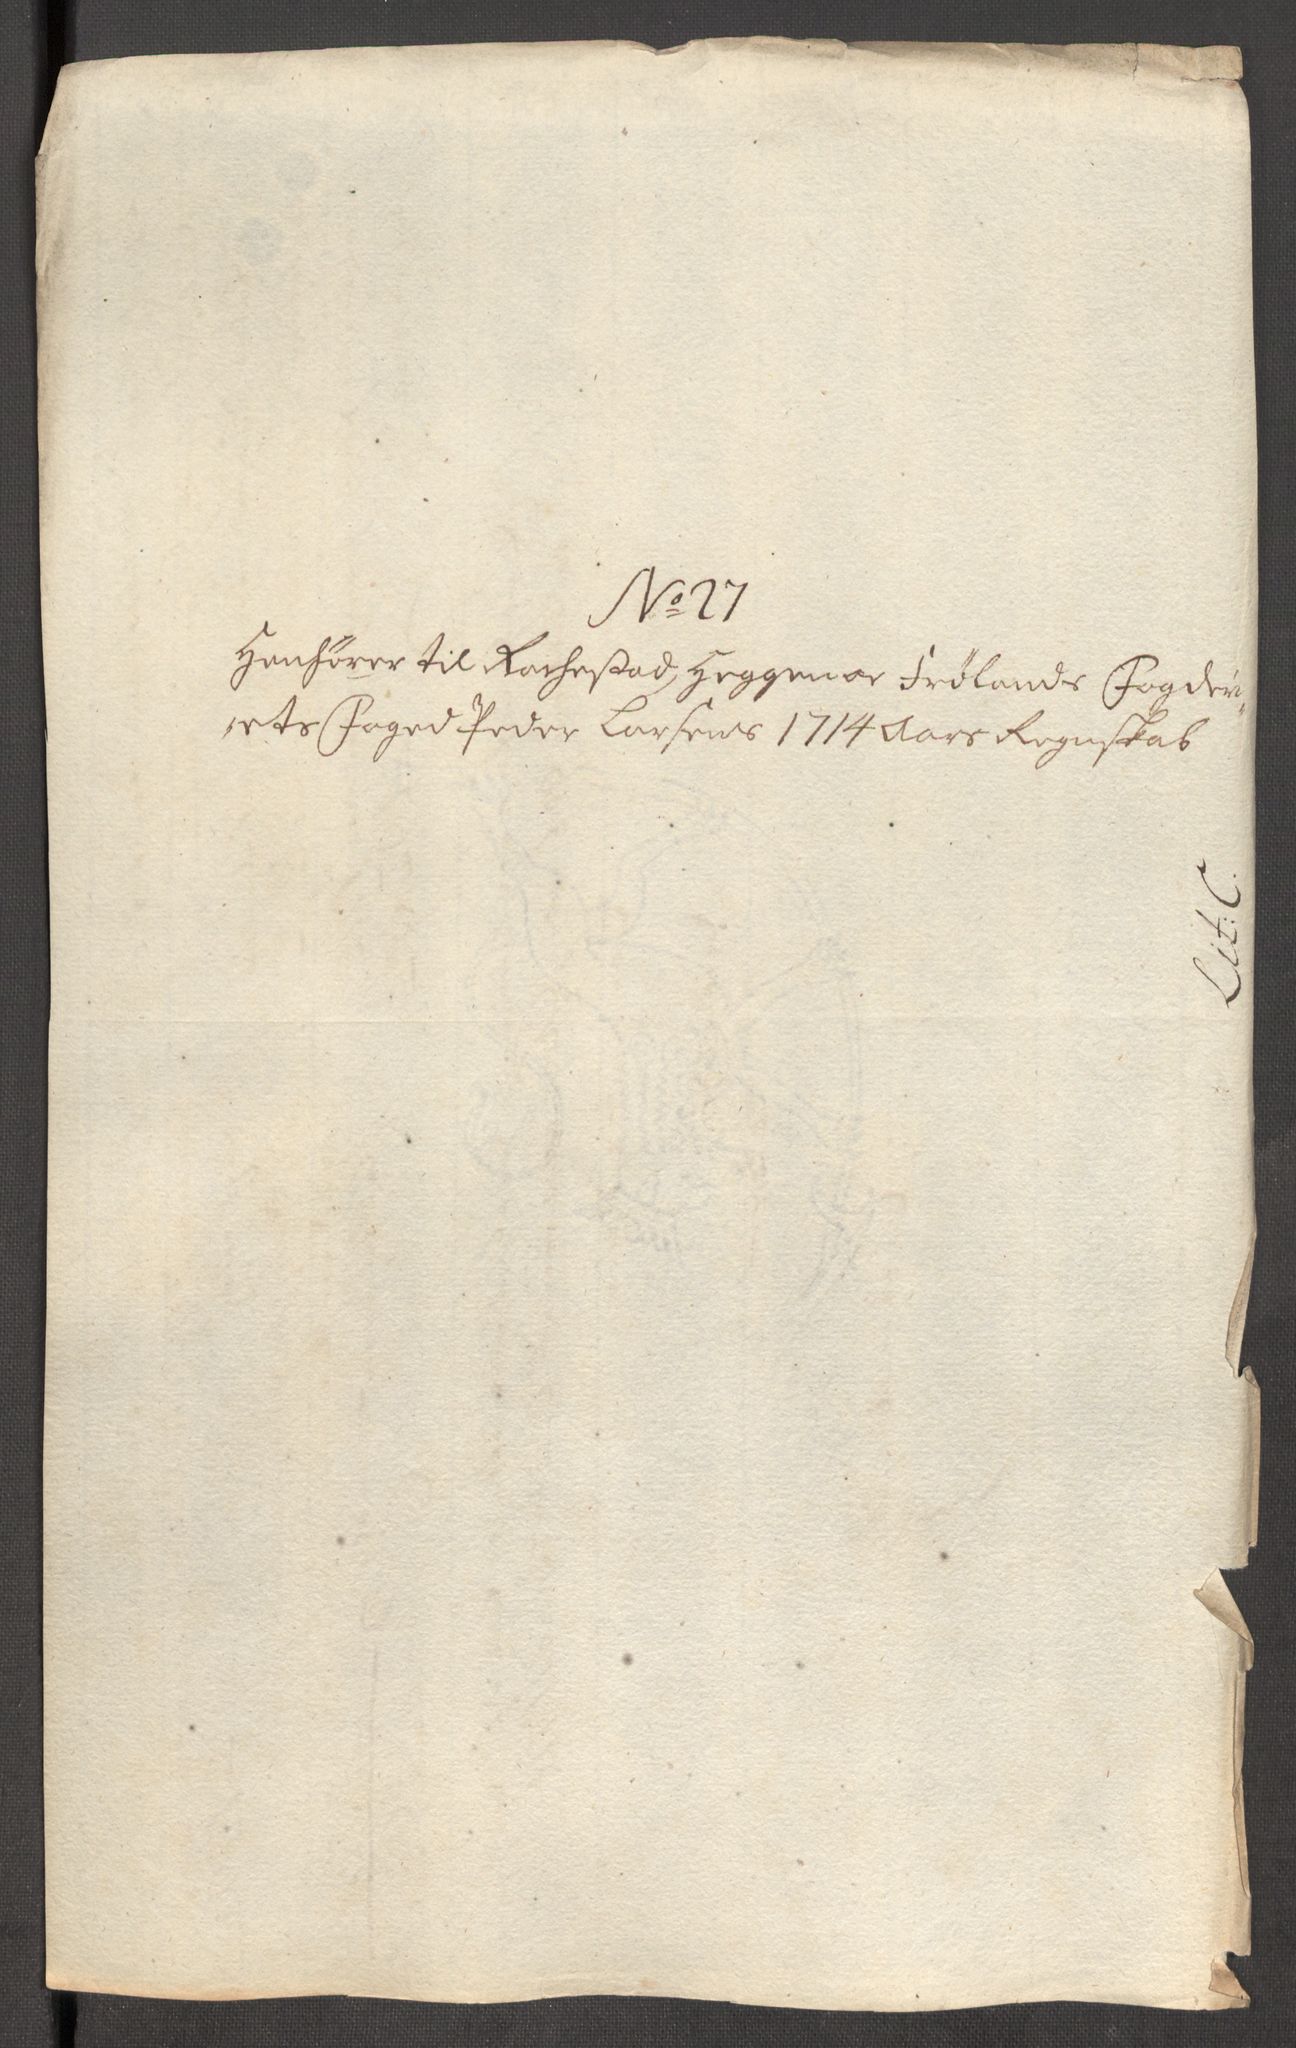 No 27
Henhører til Rachestad, Heggen oc Frølands Fogderi-
ets Foged Peder Larsens 1714 Aars Regnskab
Lit: C.